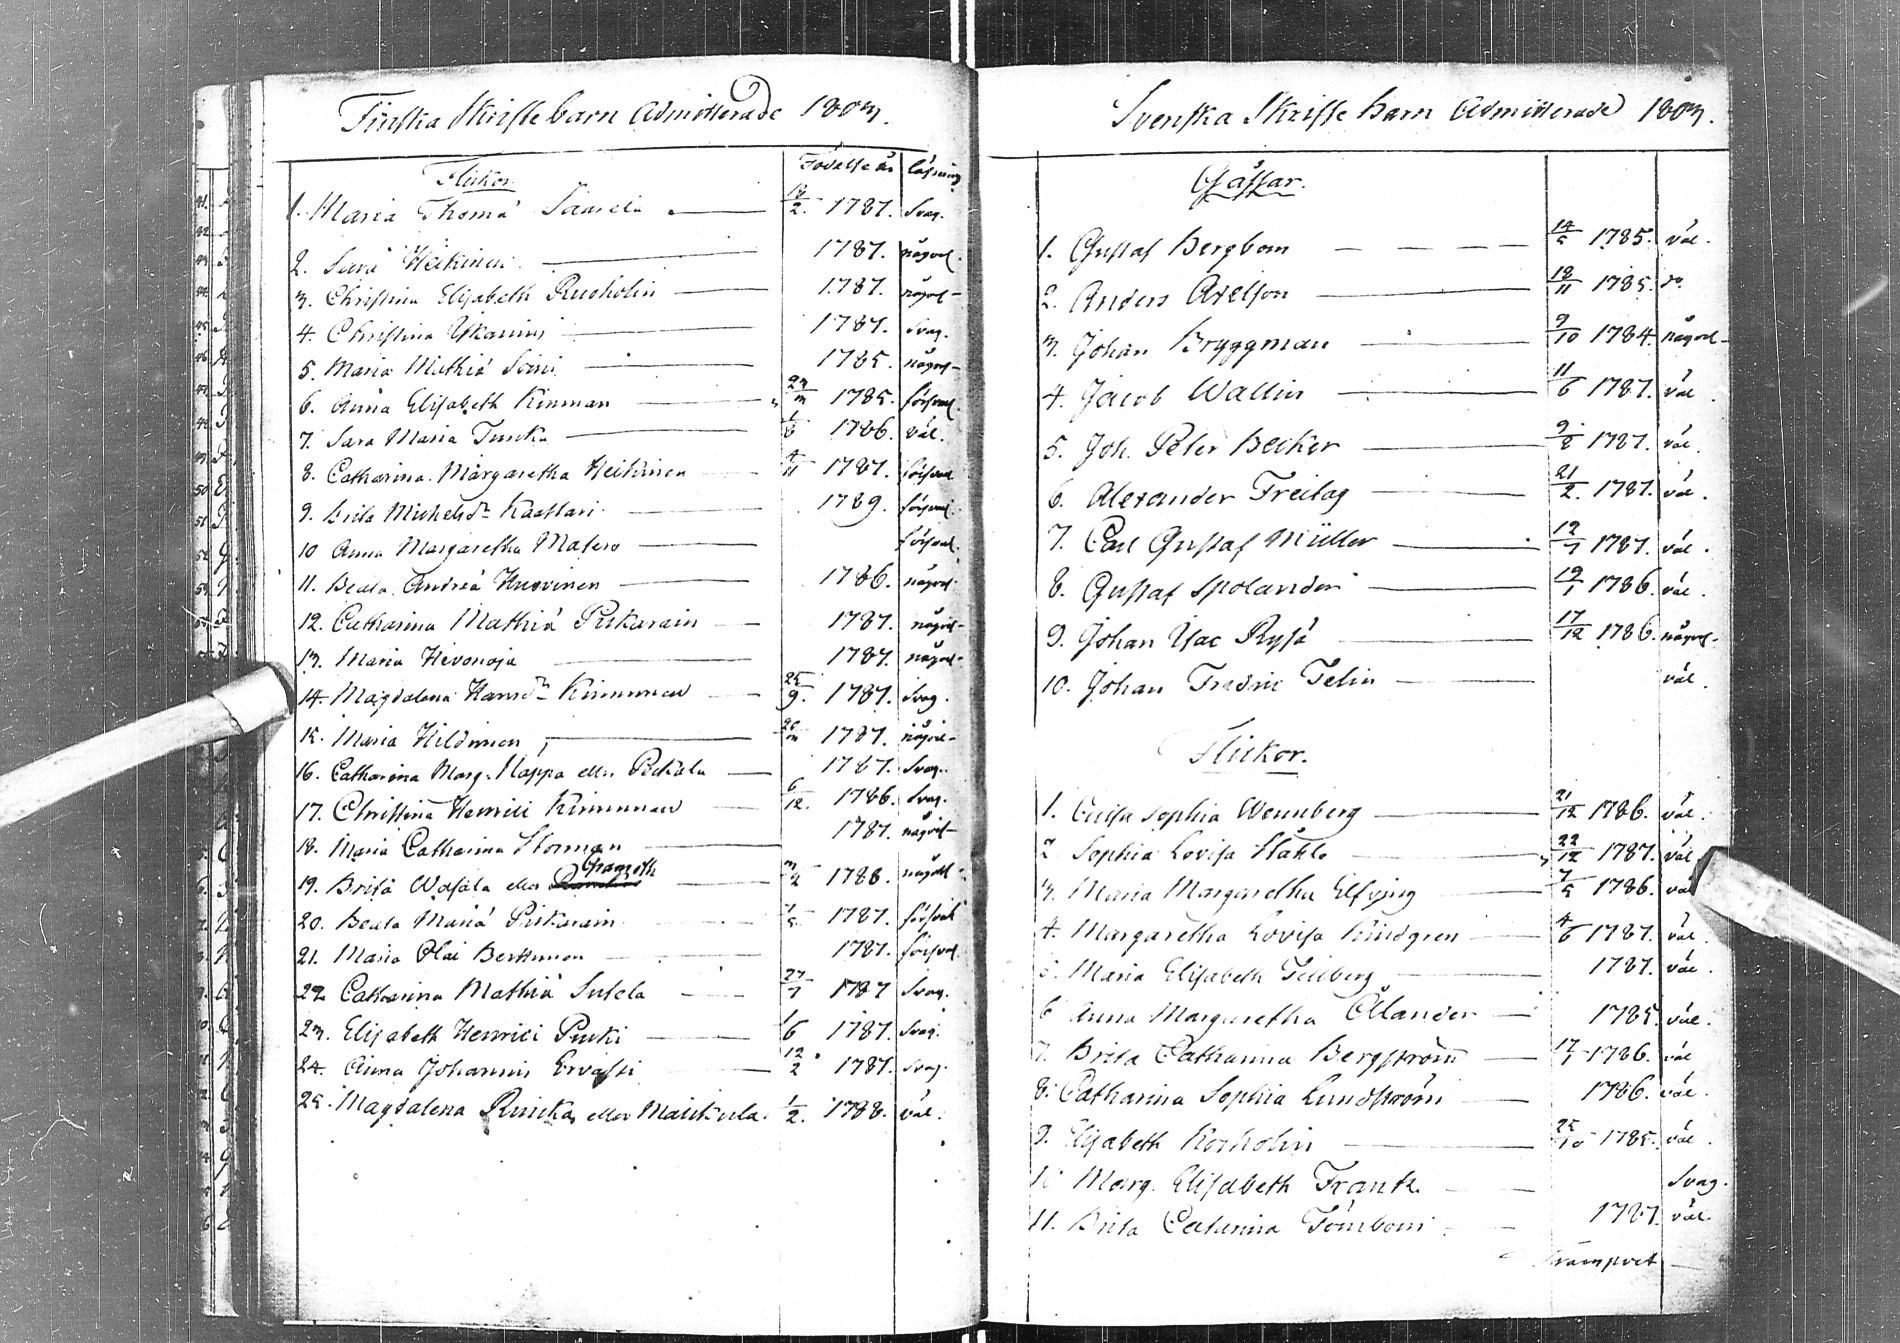 Finska Skriftebarn Admitterade 1803.
Flickor. Födelse år läsning
1. Maria Thomæ Saarela 12/2. 1787. Svag.
2. Sara Heikinen 1787. någorl.
3. Christina Elisabeth Rusholin 1787. någorl
4. Christina 1787. svag.
5. Maria Mathiæ Soini 1785. någorl
6. Anna Elisabeth Kinman 1785. försvarl.
7. Sara Maria 1786. väl.
8. Catharina Margaretha Heikinen 4/11 1787. försvarl
9. Brita Michelsdr Kaattari 1789. försvarl.
10 Anna Margaretha Matero försvarl.
11. Beata Andreæ Huovinen 1786. någorl
12. Catharina Mathiæ Piskarain 1787. någorl
13. Maria Hevonoja 1787. någorl
14. Magdalena Hansdr Kinnunen 25/9. 1787. Svag.
15. Maria Hildunen 1787. någorl
16. Catharina Marg. Nappa eller Pickala 1787. Svag.
17. Christina Henrici Kinnunen 6/12. 1786. Svag.
18. Maria Catharina Storman 1787. någorl
19. Brita Wasala eller 3/2 1788. någorl
20. Beata Maria Piskarain 1787. försvarl
21. Maria Olai Berttunen 1787. försvarl
22. Catharina Mathiæ Sutela 27/7 1787 Svag.
23. Elisabeth Henrici Purki 1/6 1787. Svag.
24. Anna Johannis Ervasti 12/2 1787. svag.
25. Magdalena Ruicka eller Maickula. 1/2. 1788. väl.
Svenska Skrifte barn Admitterade 1803.
Gåssar.
1. Gustaf Bergbom 14/5 1785. väl.
2. Anders Axelson 18/11 1785. do
3. Johan Bryggman 9/10 1784. någorl
4. Jacob Wallin 11/6 1787. väl.
5. Joh. Peter Becker 9/8 1787. väl.
6. Alexander Freitag 21/2. 1787. väl.
7. Carl Gustaf Müller 12/7 1787. väl.
8. Gustaf Spolander 19/1 1786. väl.
9. Johan Isac Rysä 17/12 1786. någorl
10. Johan Fredric Telin väl.
Flickor.
1. Cajsa Sophia Wennberg 21/12 1786. väl.
2 Sophia Lovisa Ståhle 22/12 1787. väl
3. Maria Margaretha Elfving 7/5 1786. väl
4. Margaretha Lovisa Kindgren 4/6 1787. väl.
5. Maria Elisabeth Tellberg 1787. väl.
6 Anna Margaretha Ålander 1785. väl.
7. Brita Catharina Bergström 1786. väl
8. Catharina Sophia Lundström 1786. väl.
9. Elisabeth Korholin 25/10 1785. väl.
10 Marg. Elisabeth Frank Svag.
11. Brita Catarina Törnbom 1787 väl.
Transport